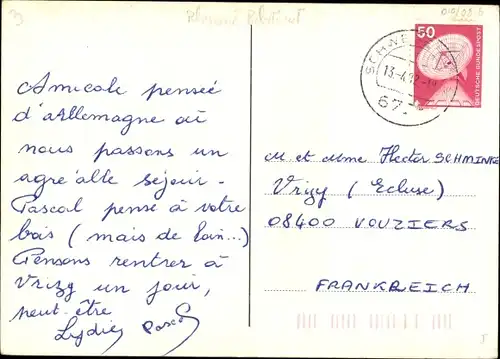 Amicale pensée
d'Allemagne où
nous passons un
agréable séjour.
Pascal pense à votre
bois (mais de loin...)
Pensons rentrer à
Vrizy un jour,
peut-être
Lydie Pascal
50
DEUTSCHE BUNDESPOST
13.-4.
67
M et Mme Hector SCHMINKE
Vrizy (Ecluse)
08400 VOUZIERS
FRANKREICH